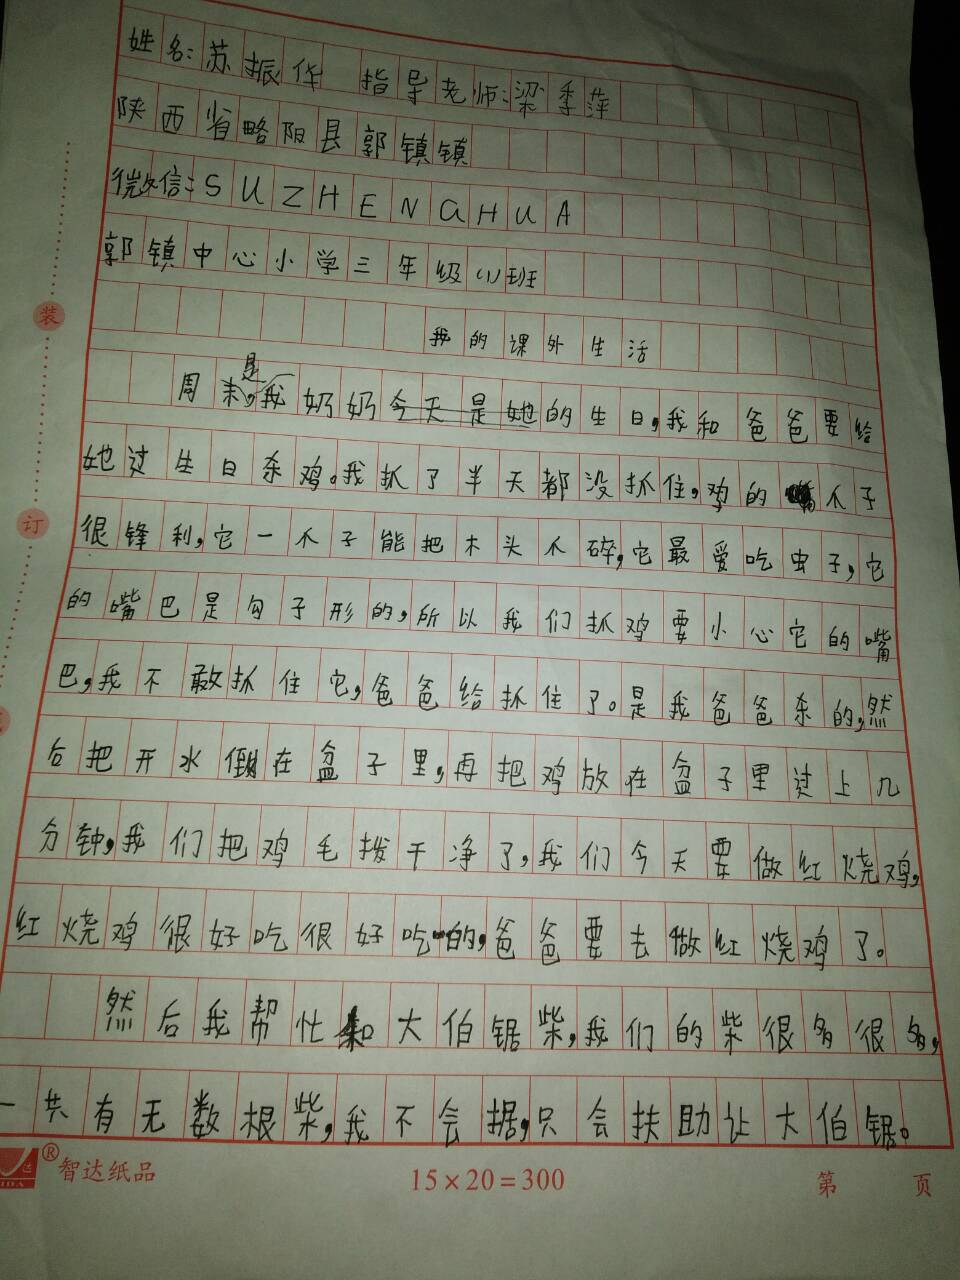 姓名:苏振华 指导老师:梁季萍
陕西省略阳县郭镇镇
微信:SUZHENGHUA
郭镇中心小学三年级(1)班
我的课外生活
周末,是我奶奶今天是她的生日,我和爸爸要给
她过生日杀鸡。我抓了半天都没抓住,鸡的爪子
很锋利,它一爪子能把木头爪碎,它最爱吃虫子,它
的嘴巴是勾子形的,所以我们抓鸡要小心它的嘴
巴,我不敢抓住它,爸爸给抓住了。是我爸爸杀的,然
后把开水倒在盆子里,再把鸡放在盆子里过上几
分钟,我们把鸡毛拨干净了,我们今天要做红烧鸡,
红烧鸡很好吃很好吃的,爸爸要去做红烧鸡了。
然后我帮忙和大伯锯柴,我们的柴很多很多,
一共有无数根柴,我不会据,只会扶助让大伯锯。
装
订
智达纸品
15×20=300
第 页